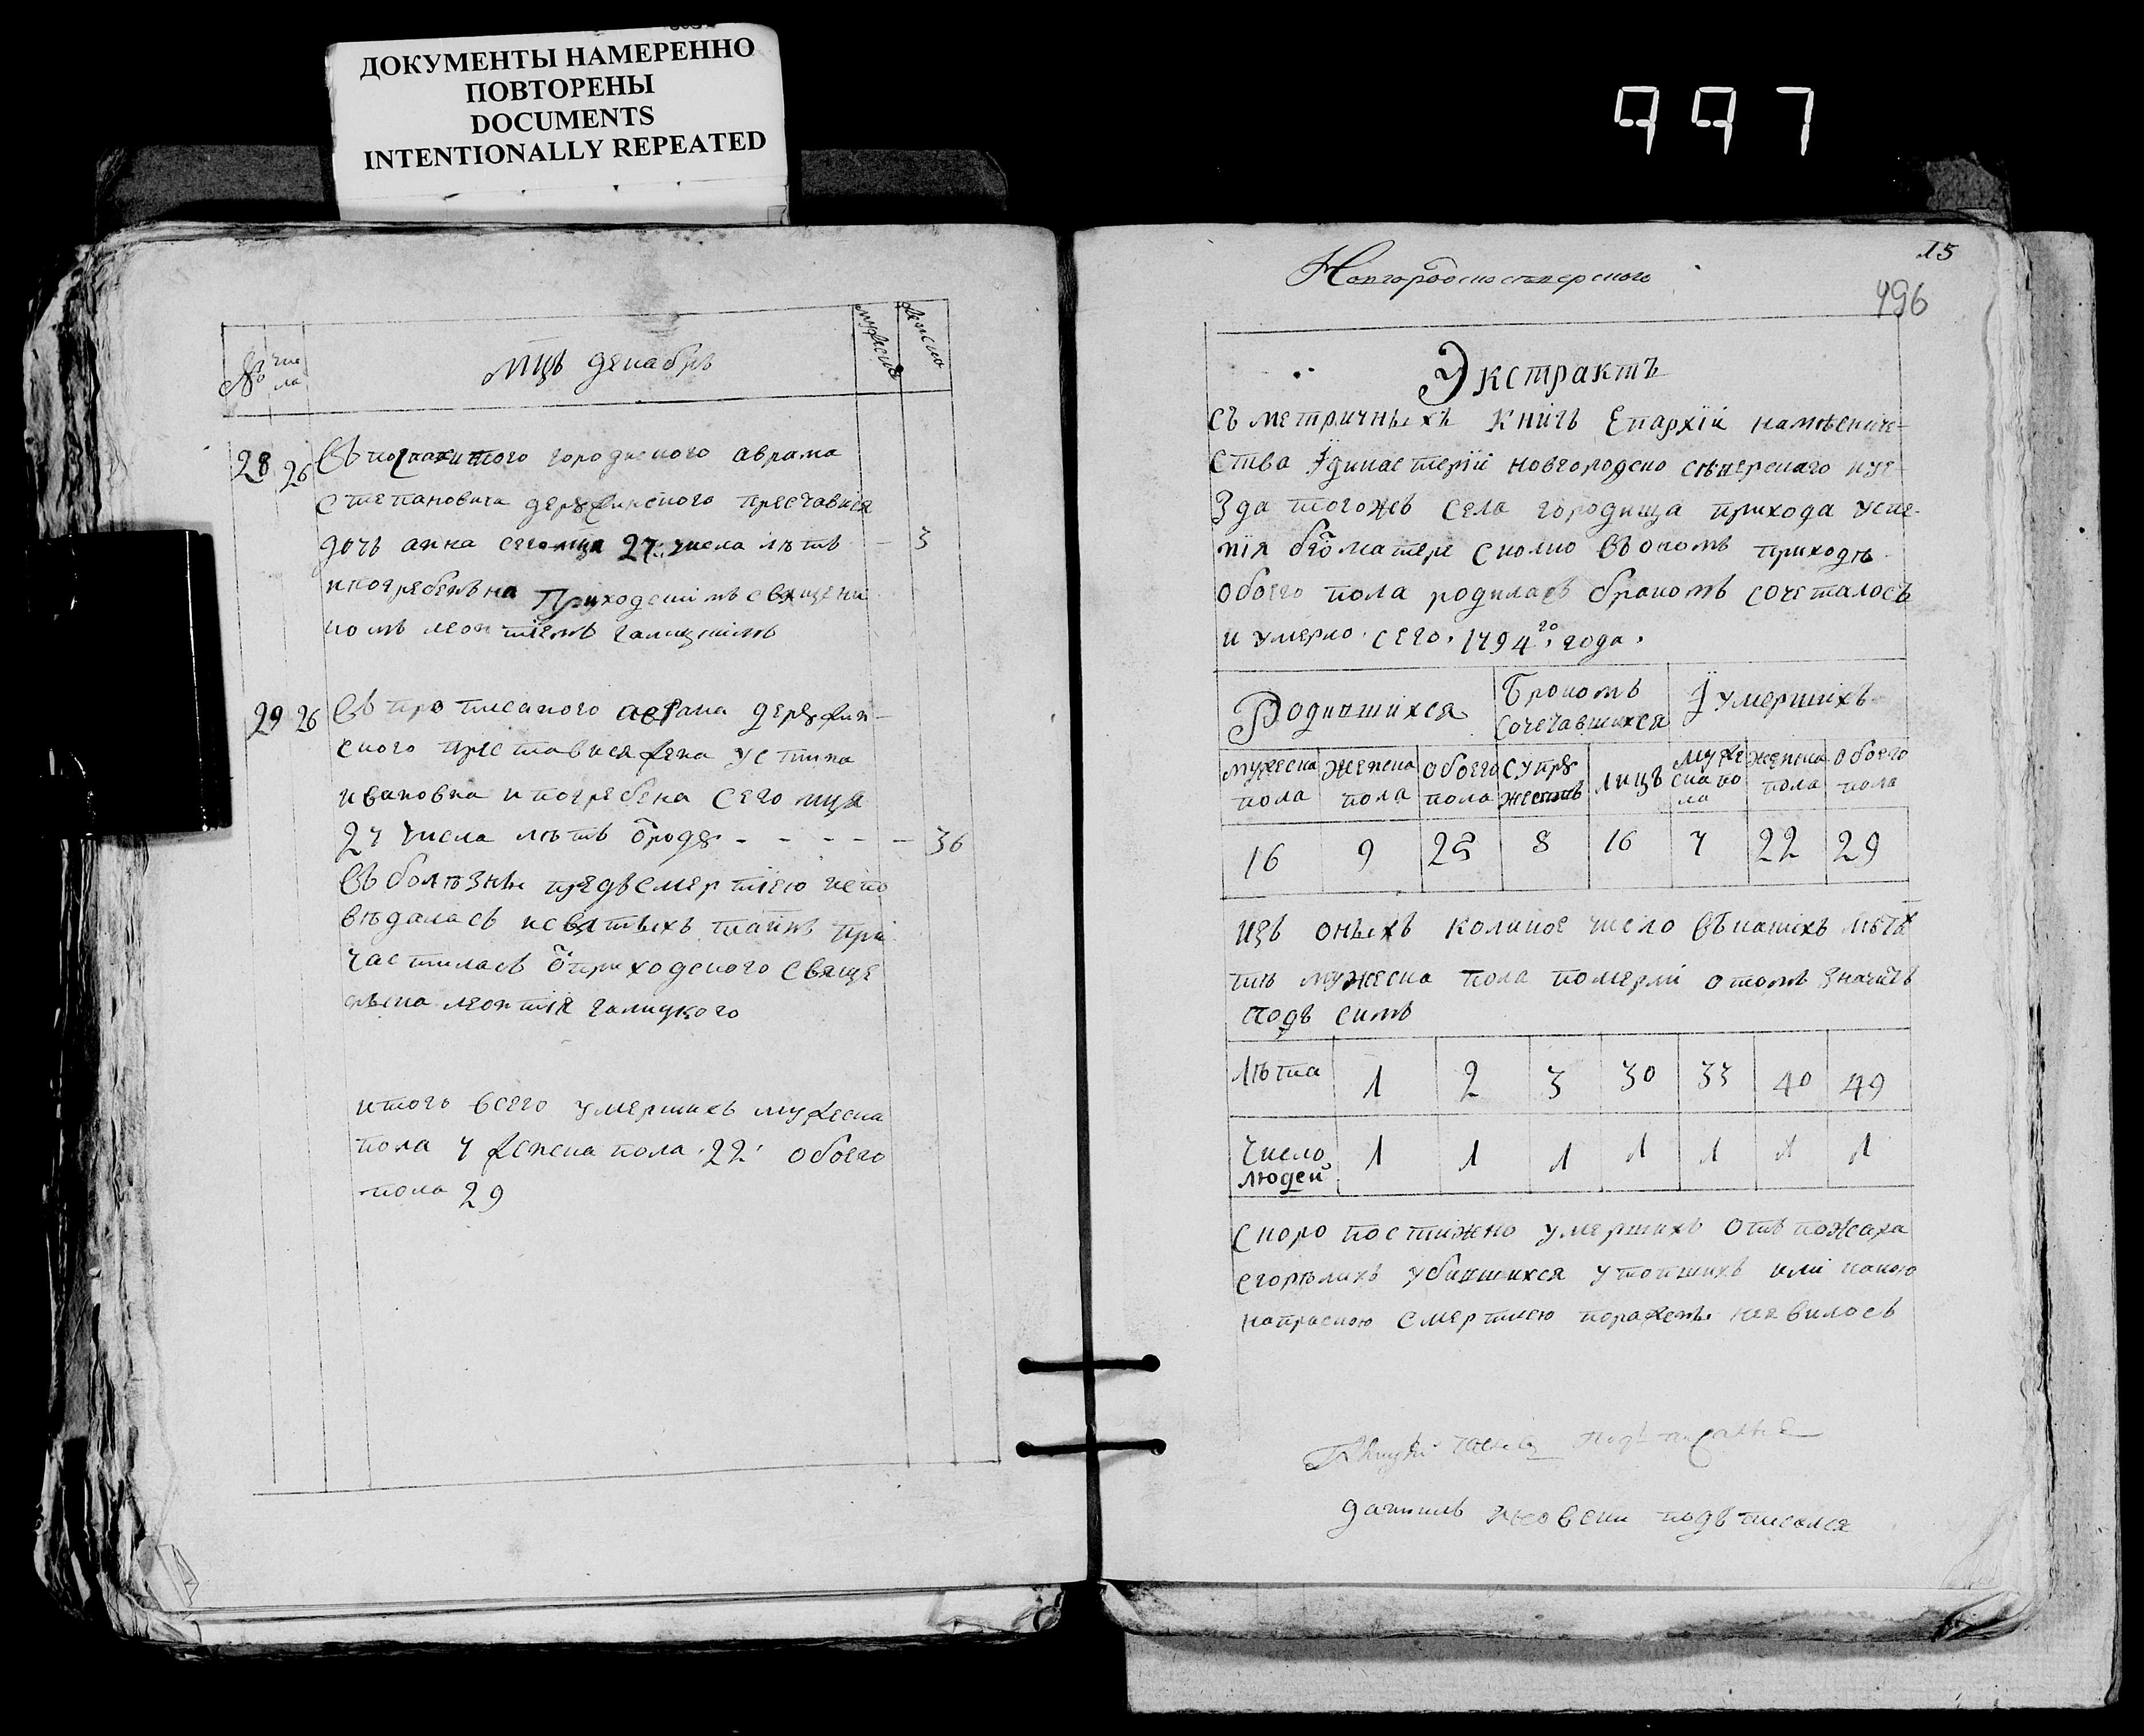 ДОКУМЕНТЫ НАМЕРЕННО
ПОВТОРЕНЫ
DOCUMENTS
INTENTIONALLY REPEATED
997
№ чис
ла
мцъ декабрь
мужеска
женска
28 26 городского аврама
степановича преставися
дочь анна сего мца 27: числа лѣтъ - 3
и погребенъна Приходскимъ священи
комъ леонтіемъ галицкимъ
29 26 Въ прописаного
ского преставися жена устина
ивановна и погребена сего мця
27 числа лѣтъ ѿроду - - - - - 36
въ болѣзны предъсмертпію испо
вѣдалась и святыхъ таинъ при
частилась ѿ приходского свяще
леонтія галицкого
итого всего умершихъ мужеска
пола 7 женска пола 22 обоего
пола 29
15
Новгородскосѣверского
496
Экстрактъ
съ метричныхъ книгъ Епархіи намѣснич-
ства новгородско сѣверскаго иуе-
зда тогожъ села городища прихода успе-
нія бго матере сколко въ ономъ приходѣ
обоего пола родилась бракомъ сочеталось
и умерло. сего. 1794го. года.
Родившихся
Бракомъ
сочетавшихся
Ї умершихъ
мужеска
пола
женска
пола
обоего
пола
супру
жествъ
лицъ
муже
ска по
ла
женска
пола
обоего
пола
16 9 25 8 16 7 22 29
изъ оныхъ коликое число въ какихъ лѣтх
мужеска пола померли о томъ значитъ
подъ симъ
лѣта 1 2 3 30 33 40 49
число
людей 1 1 1 1 1 1 1
скоро постижно умершихъ отъ пожара
сгорѣлихъ убившихся утопшихъ или какою
напрасною смертпію пораженъ неявилось
подъписался